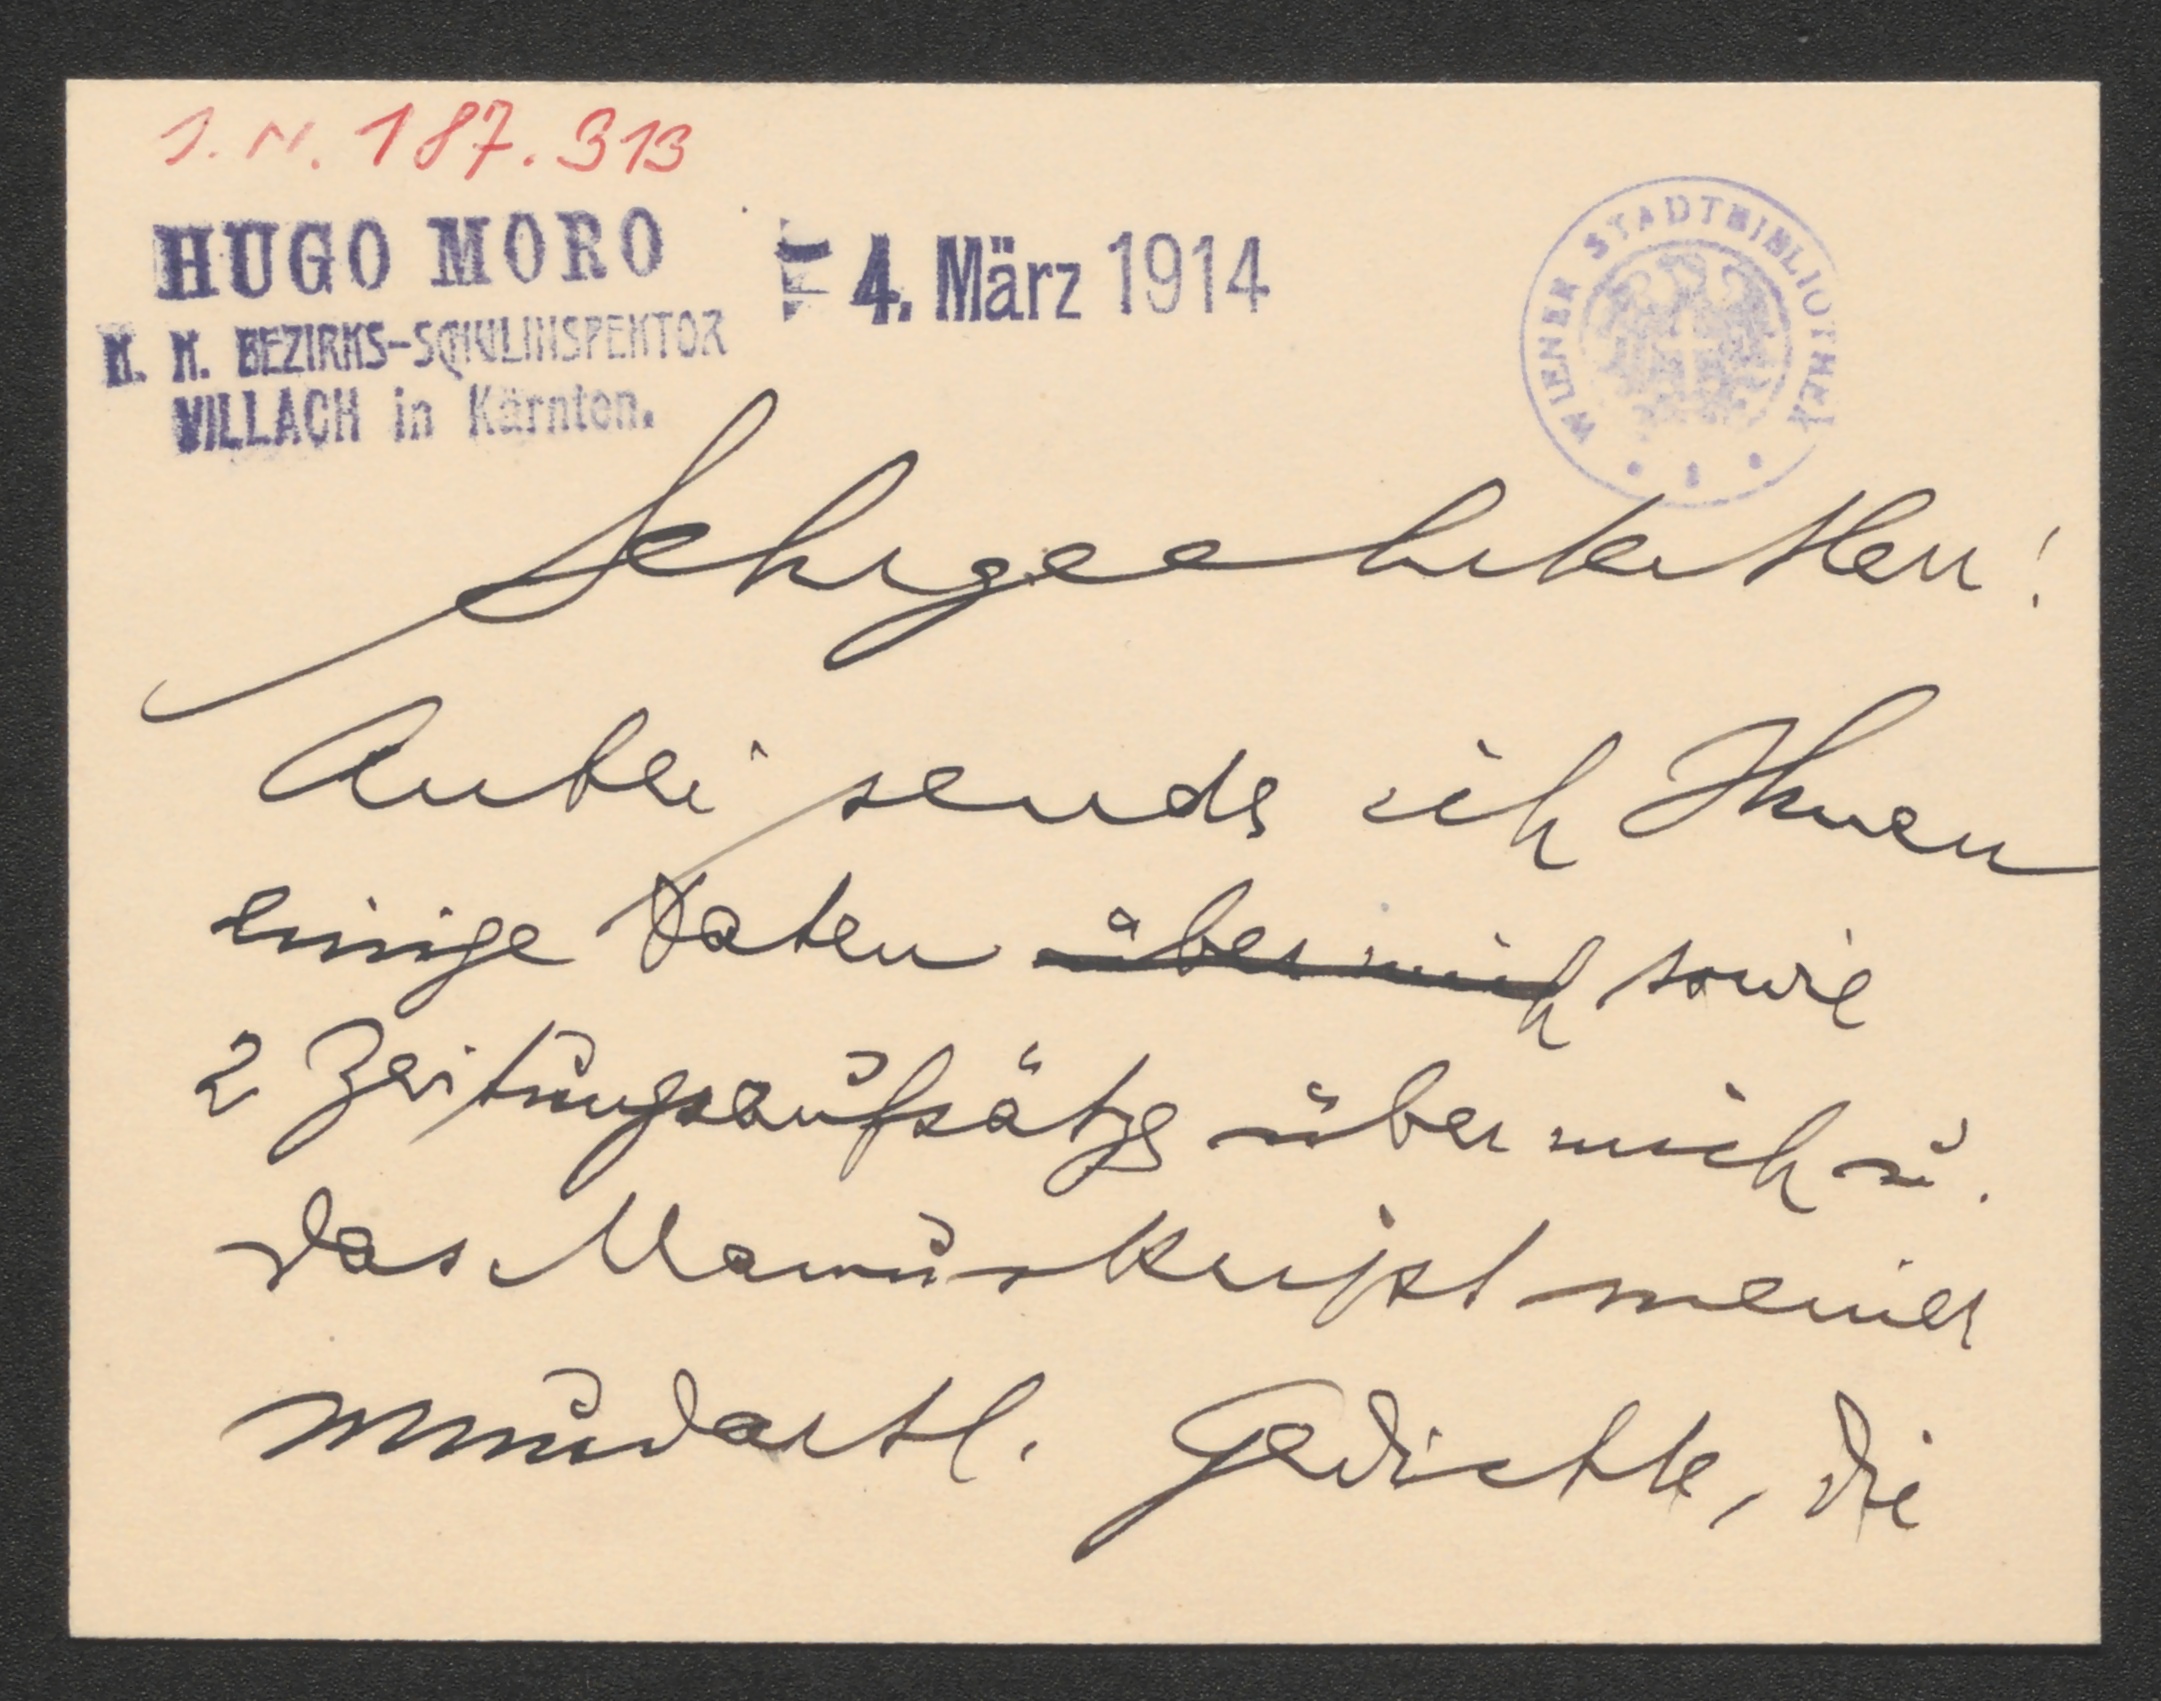 J.N. 187.313
HUGO MORO
K. K. BEZIRKS-SCHULINSPEKTOR
VILLACH in Kärnten.
4. März 1914
WIENER STADTBIBLIOTHEK
Sehrgeehrter Herr!
Anbei sende ich Ihnen
einige Daten über mich sowie
2 Zeitungsaufsätze über mich u.
das Manuskript meiner
mundartl. Gedichte, die